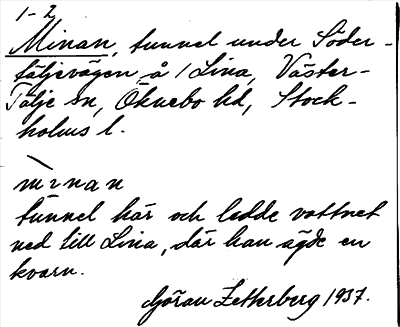 1-2
Minan, tunnel under Söder-
täljevägen, å / Lina, Väster-
Tälje sn, Öknebo hd, Stock-
holms l.
mınan
tunnel här och ledde vattnet
ned till Lina, där han ägde en
kvarn.
Göran Zetterberg 1937.